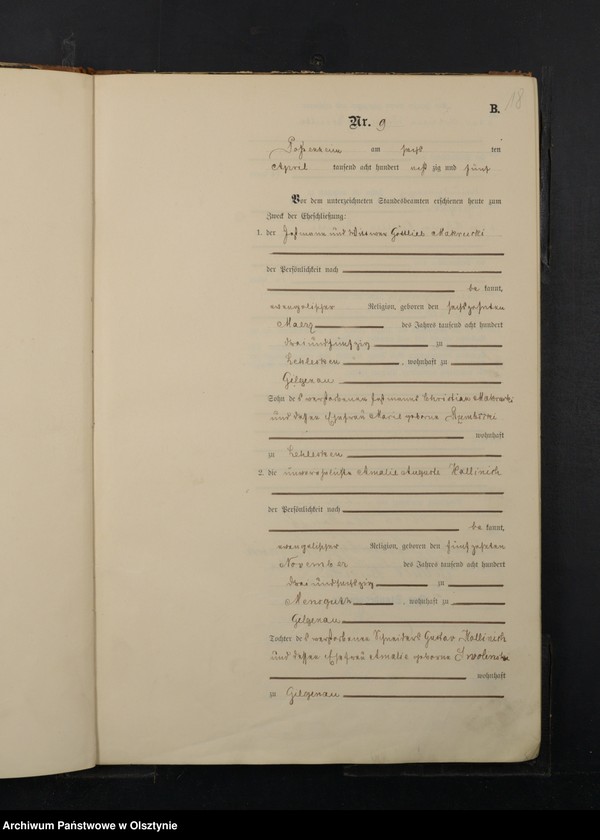 B.
18
Nr. 9
am sechs ten
April tausend acht hundert acht zig und fünf
Vor dem unterzeichneten Standesbeamten erschienen heute zum
Zweck der Eheschließung:
1. der Losmann und Wittwer Gottlieb Makrutzki
der Persönlichkeit nach
be kannt,
evangelischer Religion, geboren den sechszehnten
Maerz des Jahres tausend acht hundert
dreiundfünfzig zu
, wohnhaft zu
Gilgenau
Sohn des verstorbenen Losmanns Christian
und dessen Ehefrau Marie geborne
wohnhaft
zu
2. die unverehelichte Amalie Auguste Kollinich
der Persönlichkeit nach
be kannt,
evangelischer Religion, geboren den fünfzehnten
November des Jahres tausend acht hundert
dreiundsechszig zu
Mensguth , wohnhaft zu
Gilgenau
Tochter des verstorbenen Schneiders Gustav Kollinich
und dessen Ehefrau Amalie geborne
wohnhaft
zu Gilgenau
Archiwum Państwowe w Olsztynie